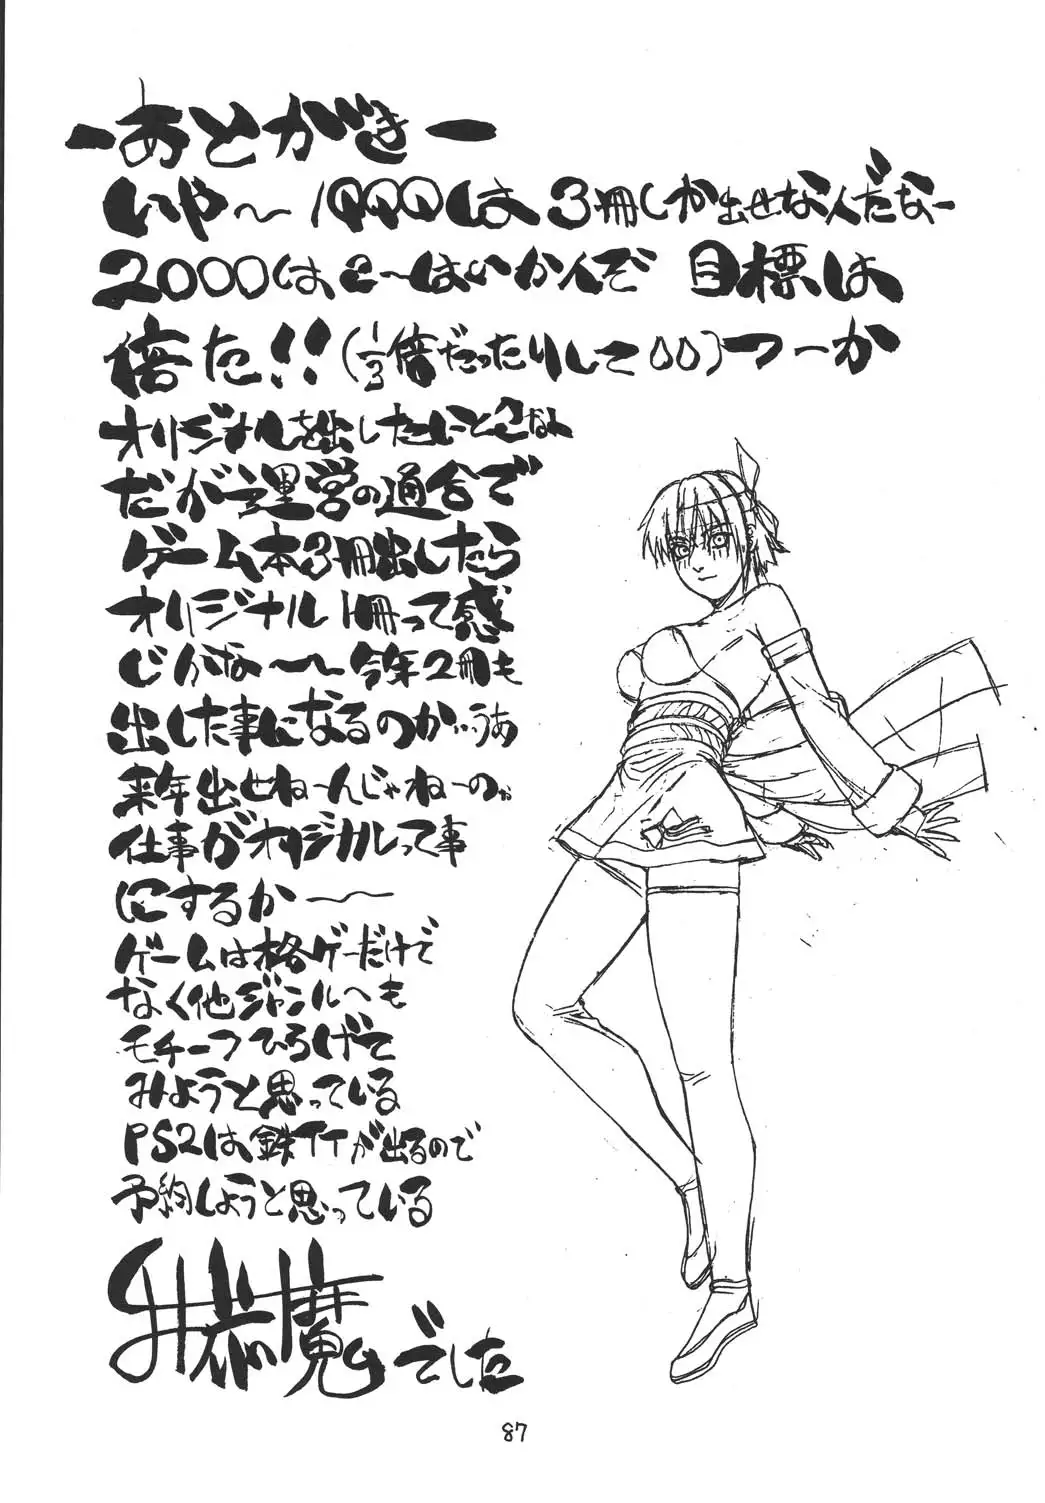 ーあとがきー
いや〜1999は3冊しか出せなんだなー
2000はこーはいかんぞ 目標は
倍だ!!(1/3倍だったりして00)つーか
オリジナルを出したいとこなん
だが運営の都合で
ゲーム本3冊出したら
オリジナル1冊って感
じかな〜〜今年2冊も
出した事になるのか…うあ
来年出せねーんじゃねーのか
仕事がオリジナルって事
にするか〜〜
ゲームは格ゲーだけで
なく他ジャンルへも
モチーフひろげて
みようと思っている
PS2は鉄TTが出るので
予約しようと思っている
でした
87